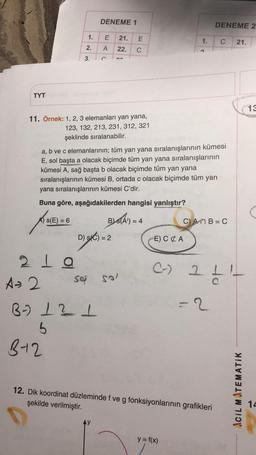 DENEME 1
1. E 21. E
2. A 22. C
3. C
DENEME 2
1. C 21.
TYT
13
11. Örnek: 1, 2, 3 elemanları yan yana,
123, 132, 213, 231, 312, 321
şeklinde sıralanabilir.
a, b ve c elemanlarının; tüm yan yana sıralanışlarının kümesi
E, sol başta a olacak biçimde tüm yan yana sıralanışlarının
kümesi A, sağ başta b olacak biçimde tüm yan yana
sıralanışlarının kümesi B, ortada c olacak biçimde tüm yan
yana sıralanışlarının kümesi C'dir.
Buna göre, aşağıdakilerden hangisi yanlıştır?
A) s(E) = 6
B) s(A') = 4
C) A ∩ B = C
D) s(C) = 2
E) C ⊄ A
2 1
A→ 2
sağ sol
C-) 2 1 1
C
= 2
B-) 1 2 1
b
B→2
12. Dik koordinat düzleminde f ve g fonksiyonlarının grafikleri
şekilde verilmiştir.
y
y = f(x)
ACIL MATEMATİK
14